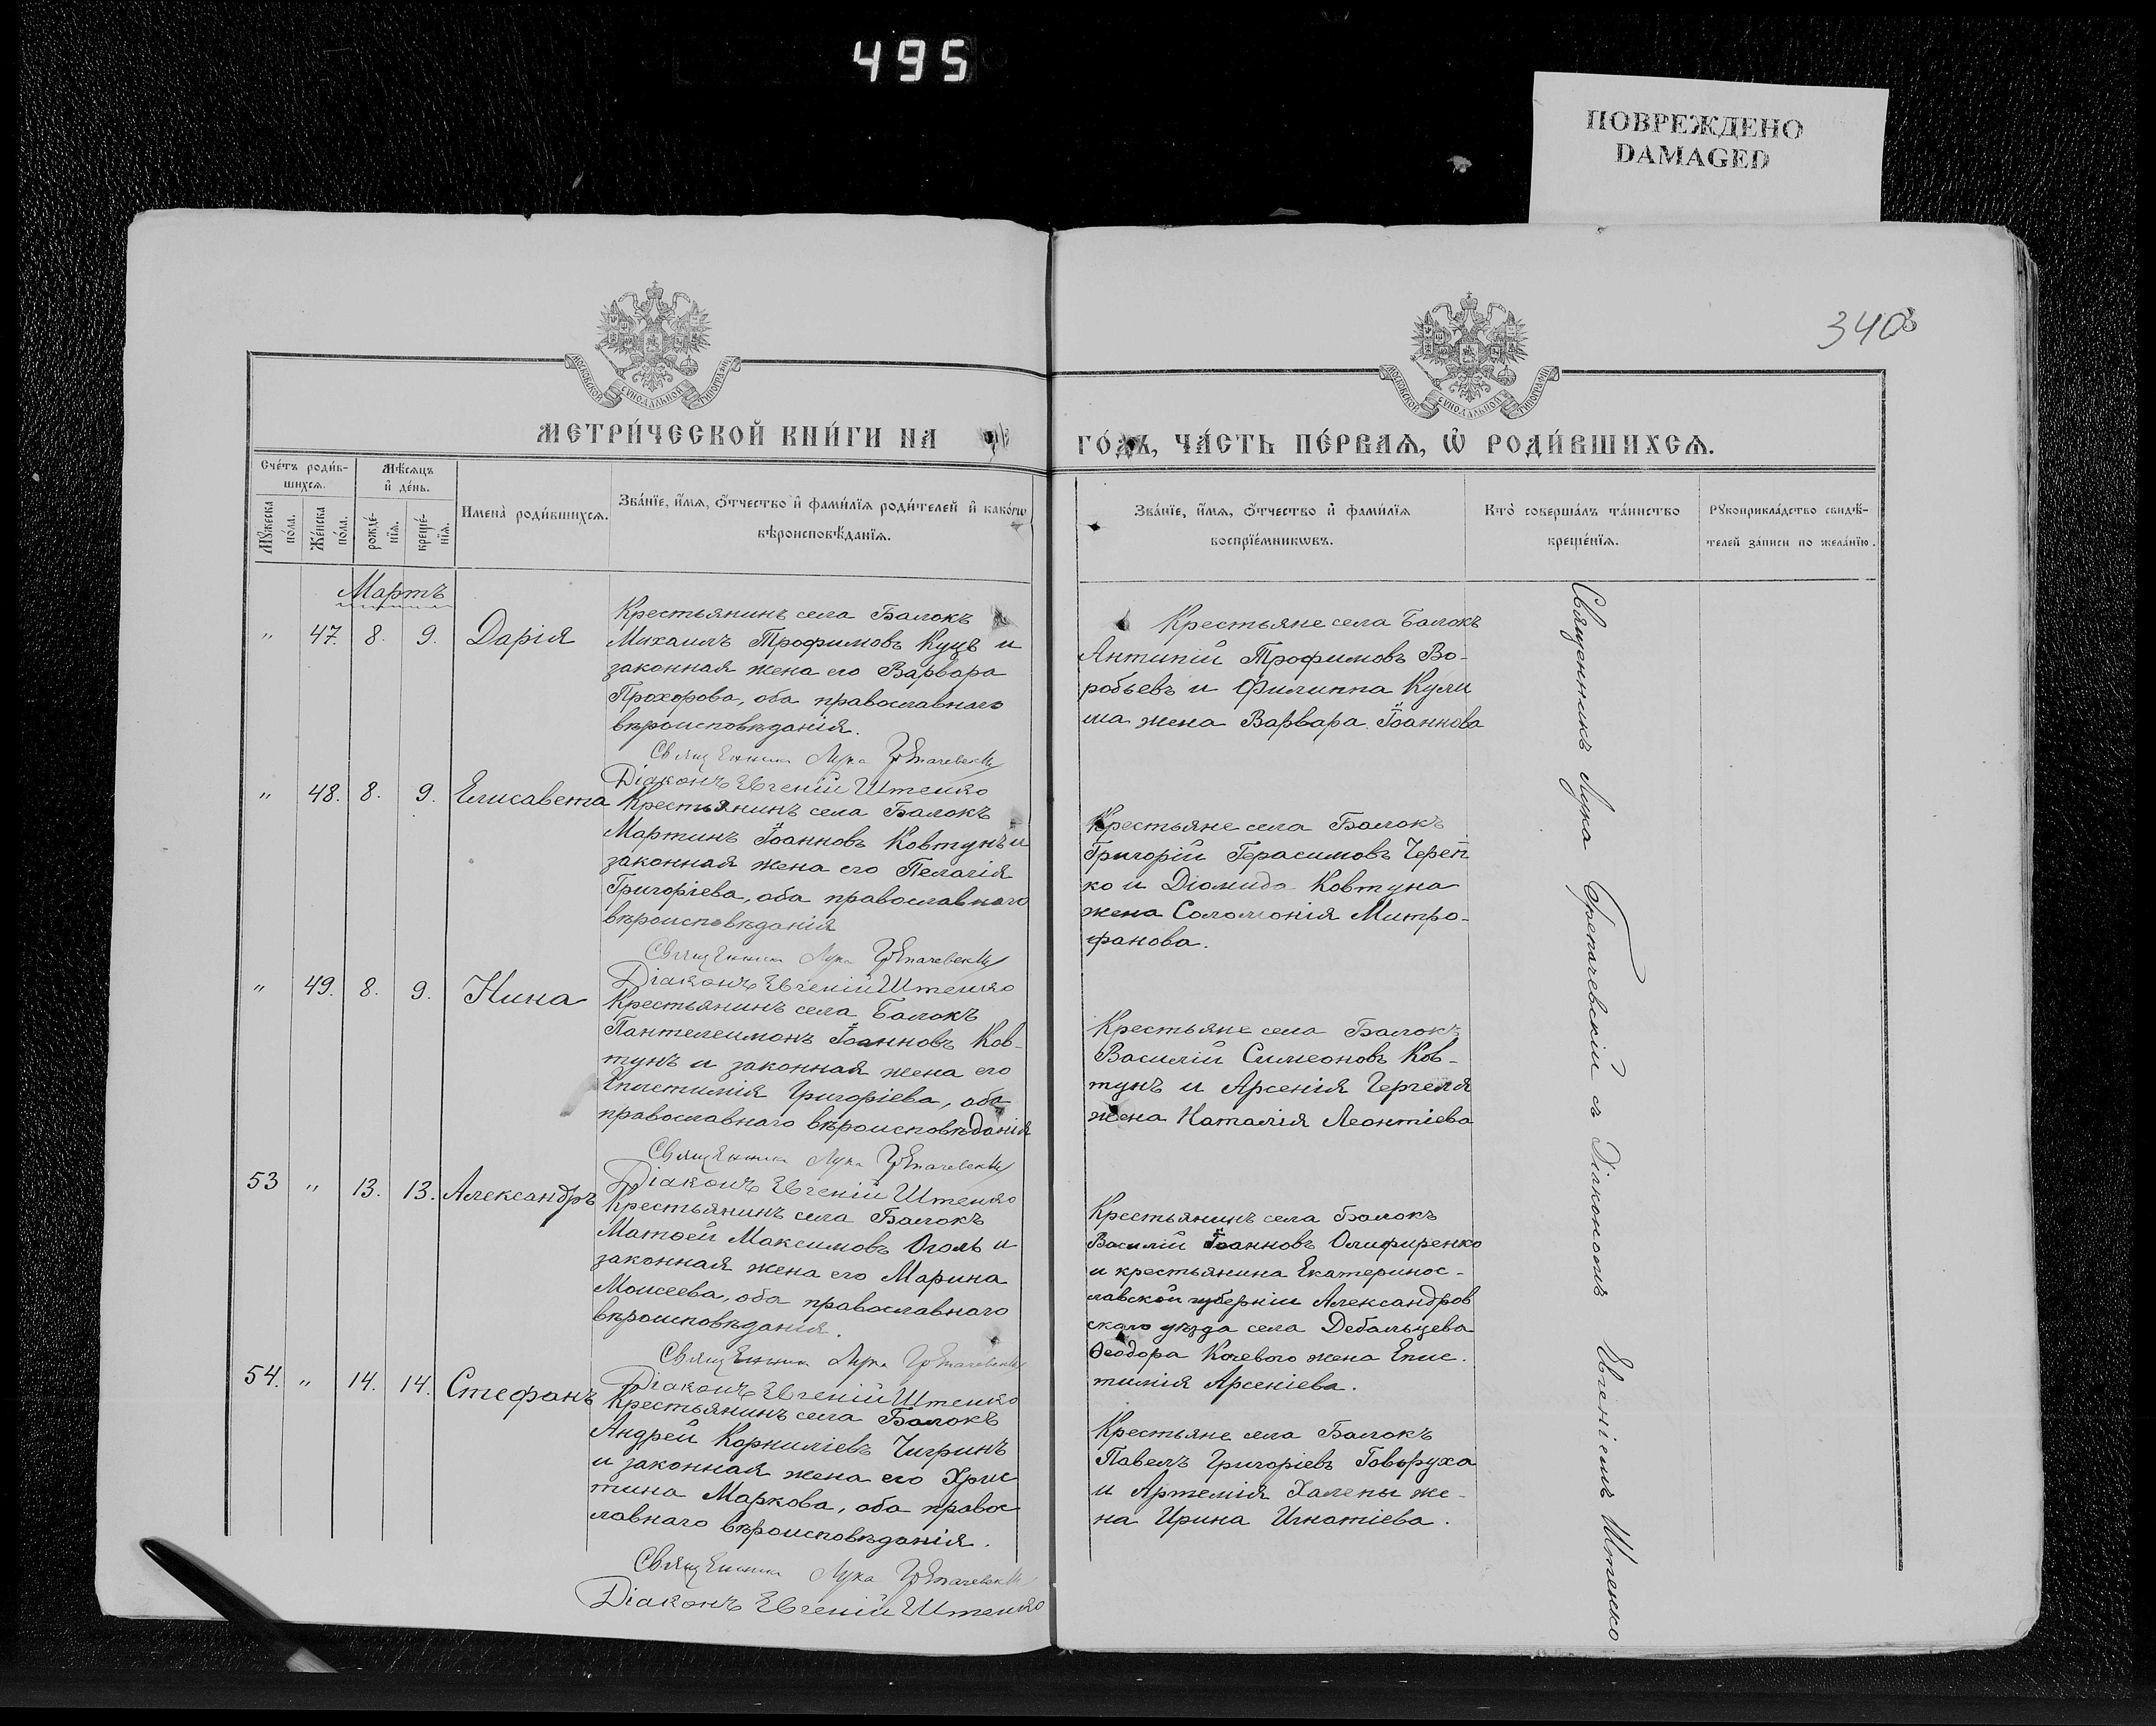 495
ПОВРЕЖДЕНО
DAMAGED
340
МОСКОВСКОЙ СУНОДАЛЬНОЙ ТИПОГРАФІИ
МОСКОВСКОЙ СУНОДАЛЬНОЙ ТИПОГРАФІИ
МЕТРИ́ЧЕСКОЙ КНИ́ГИ НА
ГО́ДЪ, ЧА́СТЬ ПЕ́РВАѦ, Ѡ҆ РОДИ́ВШИХСѦ.
Сче́тъ роди́в-
шихсѧ.
Мѣ́сѧцъ
и҆ де́нь.
Мꙋ́жеска по́ла.
Же́нска по́ла.
рожде́-
нїѧ.
креще́-
нїѧ.
Имена̀ роди́вшихсѧ.
Зва́нїе, и҆́мѧ, ѻ҆́тчество и҆ фами́лїѧ роди́телей и҆ како́гѡ
вѣроисповѣ́данїѧ.
Зва́нїе, и҆́мѧ, ѻ҆́тчество и҆ фами́лїѧ
воспрїе́мникѡвъ.
Кто̀ соверша́лъ та́инство
креще́нїѧ.
Рꙋкоприкла́дство свидѣ́-
телей за́писи по жела́нїю.
Мартъ
" 47. 8. 9. Дарія
Крестьянинъ села Балокъ
Михаилъ Трофимовъ Куцъ и
законная жена его Варвара
Прохорова, оба православнаго
вѣроисповѣданія.
Священникъ Лука
Діаконъ Евгеній Штенко
Крестьяне села Балокъ
Антипій Трофимовъ Во-
робьевъ и Филиппа Кули
ша жена Варвара Іоаннова
" 48. 8. 9. Елисавета
Крестьянинъ села Балокъ
Мартинъ Іоанновъ Ковтунъ и
законная жена его Пелагія
Григоріева, оба православнаго
вѣроисповѣданія
Священникъ Лука
Діаконъ Евгеній Штенко
Крестьяне села Балокъ
Григорій Герасимовъ
ко и Діомида Ковтуна
жена Соломонія Митро-
фанова.
" 49. 8. 9. Нина
Крестьянинъ села Балокъ
Пантелеимонъ Іоанновъ Ков-
тунъ и законная жена его
Епистимія Григоріева, оба
православнаго вѣроисповѣданія
Священникъ Лука
Діаконъ Евгеній Штенко
Крестьяне села Балокъ
Василій Симеоновъ Ков-
тунъ и Арсенія Гергеля
жена Наталія Леонтіева
53 " 13. 13. Александръ
Крестьянинъ села Балокъ
Матѳей Максимовъ Оголь и
законная жена его Марина
Моисеева, оба православнаго
вѣроисповѣданія.
Священникъ Лука
Діаконъ Евгеній Штенко
Крестьянинъ села Балокъ
Василій Іоанновъ Олифиренко
и крестьянина Екатеринос-
лавской губерніи Александров
скаго уѣзда села Дебальцева
Ѳеодора Кочевого жена Епис-
тимія Арсеніева.
54. " 14. 14. Стефанъ
Крестьянинъ села Балокъ
Андрей Корниліевъ Чигринъ
и законная жена его Хрис
тина Маркова, оба правос
лавнаго вѣроисповѣданія.
Священникъ Лука
Діаконъ Евгеній Штенко
Крестьяне села Балокъ
Павелъ Григоріевъ Говоруха
и Артемія Халепы же-
на Ирина Игнатіева.
Священникъ Лука съ Діакономъ Евгеніемъ Штенко